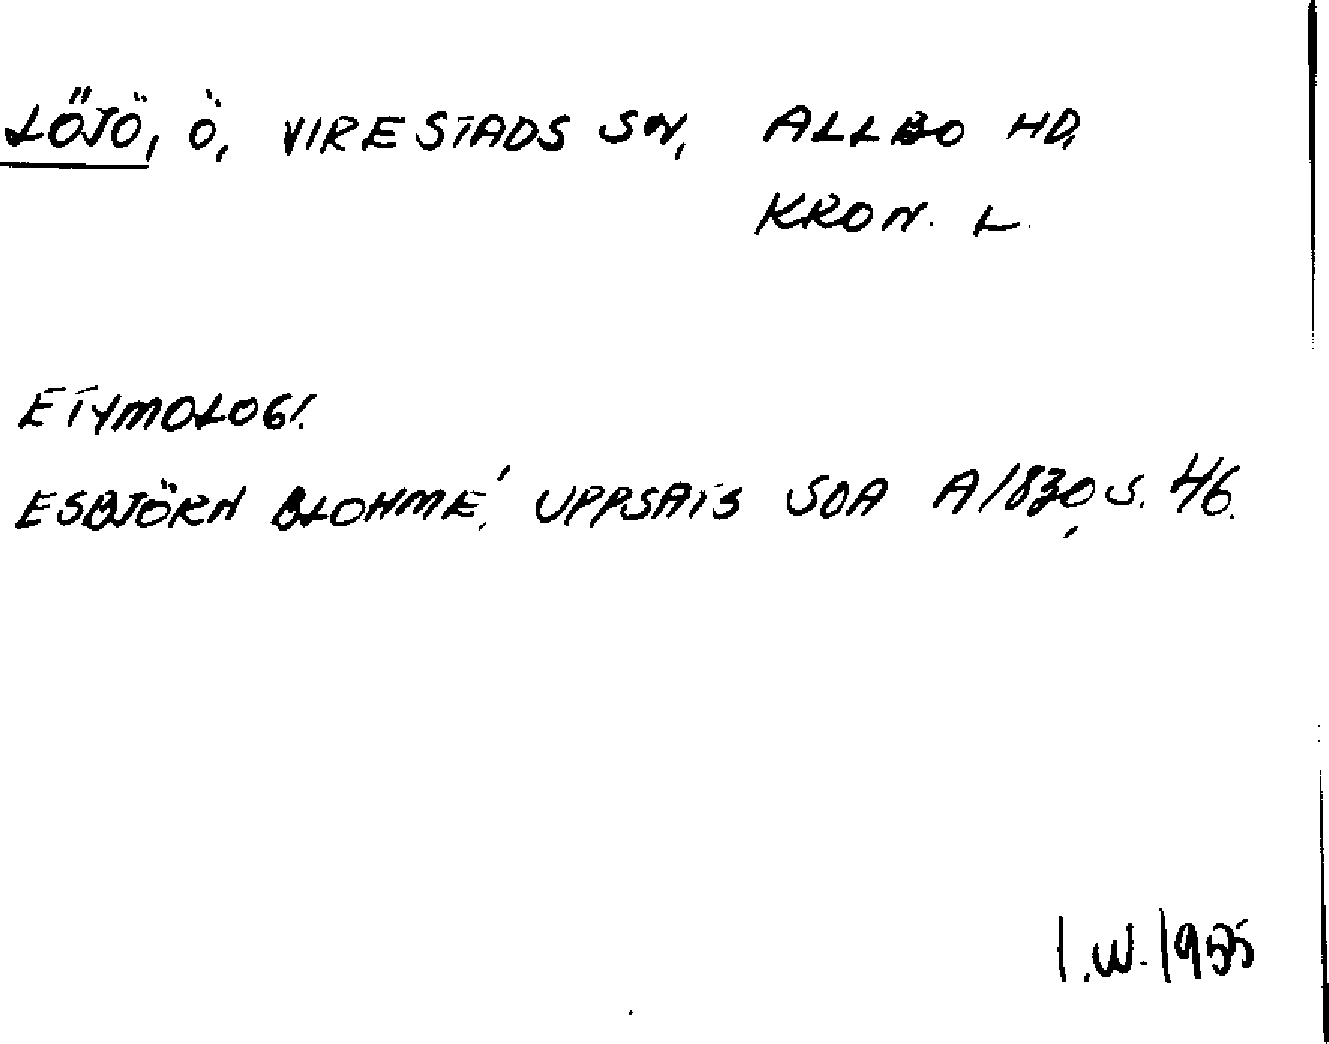 LÖJÖ, Ö, VIRESTADS SN, ALLBO HD,
KRON. L.
ETYMOLOGI.
ESBJÖRN BLOHMÉ, UPPSATS SOA A/830, S. 46.
I.W. 1955